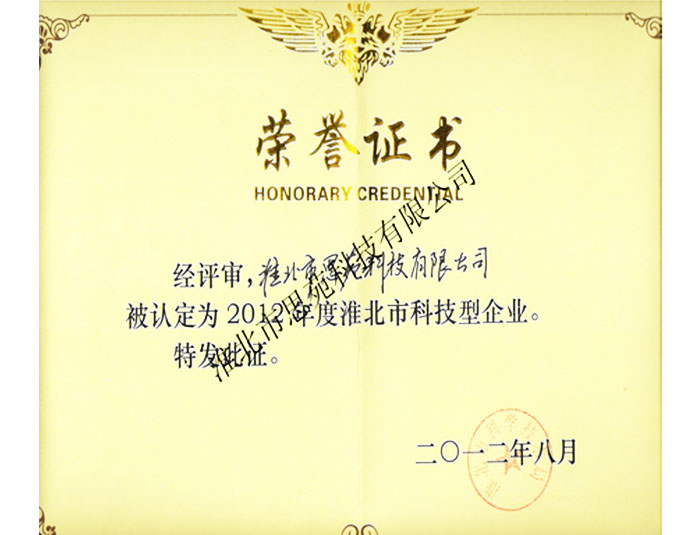 荣誉证书
HONORARY CREDENTIAL
经评审,淮北市思苑科技有限公司
被认定为2012年度淮北市科技型企业。
特发此证。
二〇一二年八月
淮北市科学技术局
淮北市思苑科技有限公司